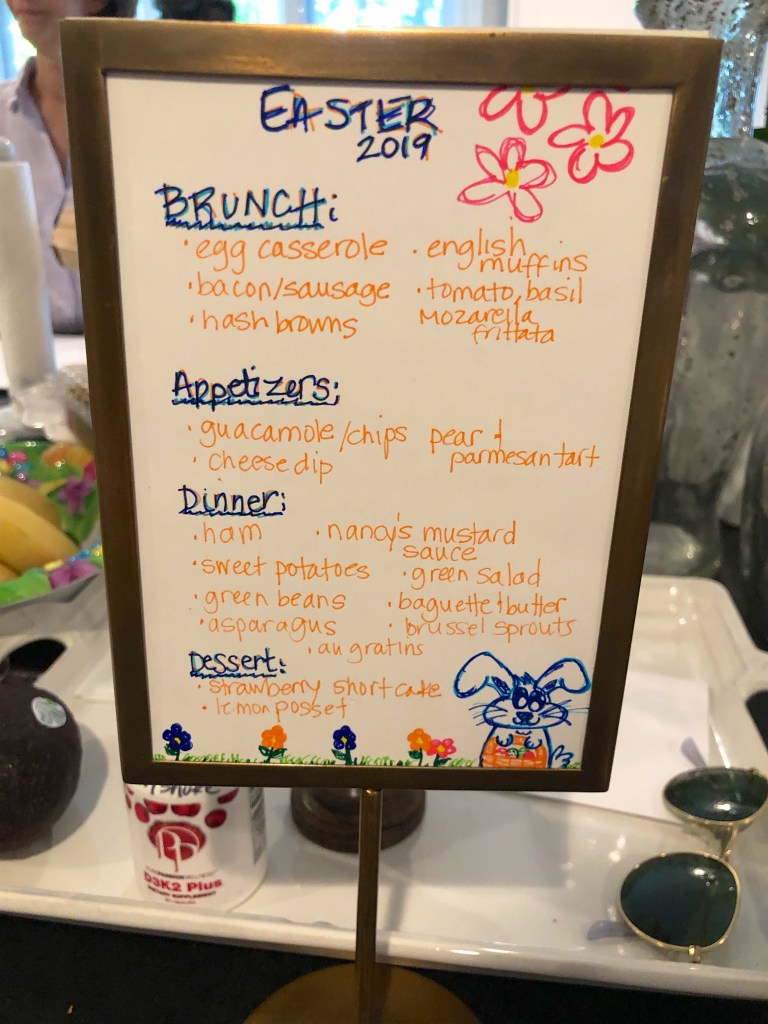 EASTER
2019
BRUNCH:
· egg casserole
· bacon/sausage
· hash browns
· english
muffins
· tomato, basil
Mozarella
frittata
Appetizers:
· guacamole/chips
· cheese dip
pear &
parmesan tart
Dinner:
· ham
· sweet potatoes
· green beans
· asparagus
· nancy's mustard
sauce
· green salad
· baguette & butter
· brussel sprouts
· au gratins
Dessert:
· strawberry short cake
· lemon posset
D3K2 Plus
DIETARY SUPPLEMENT